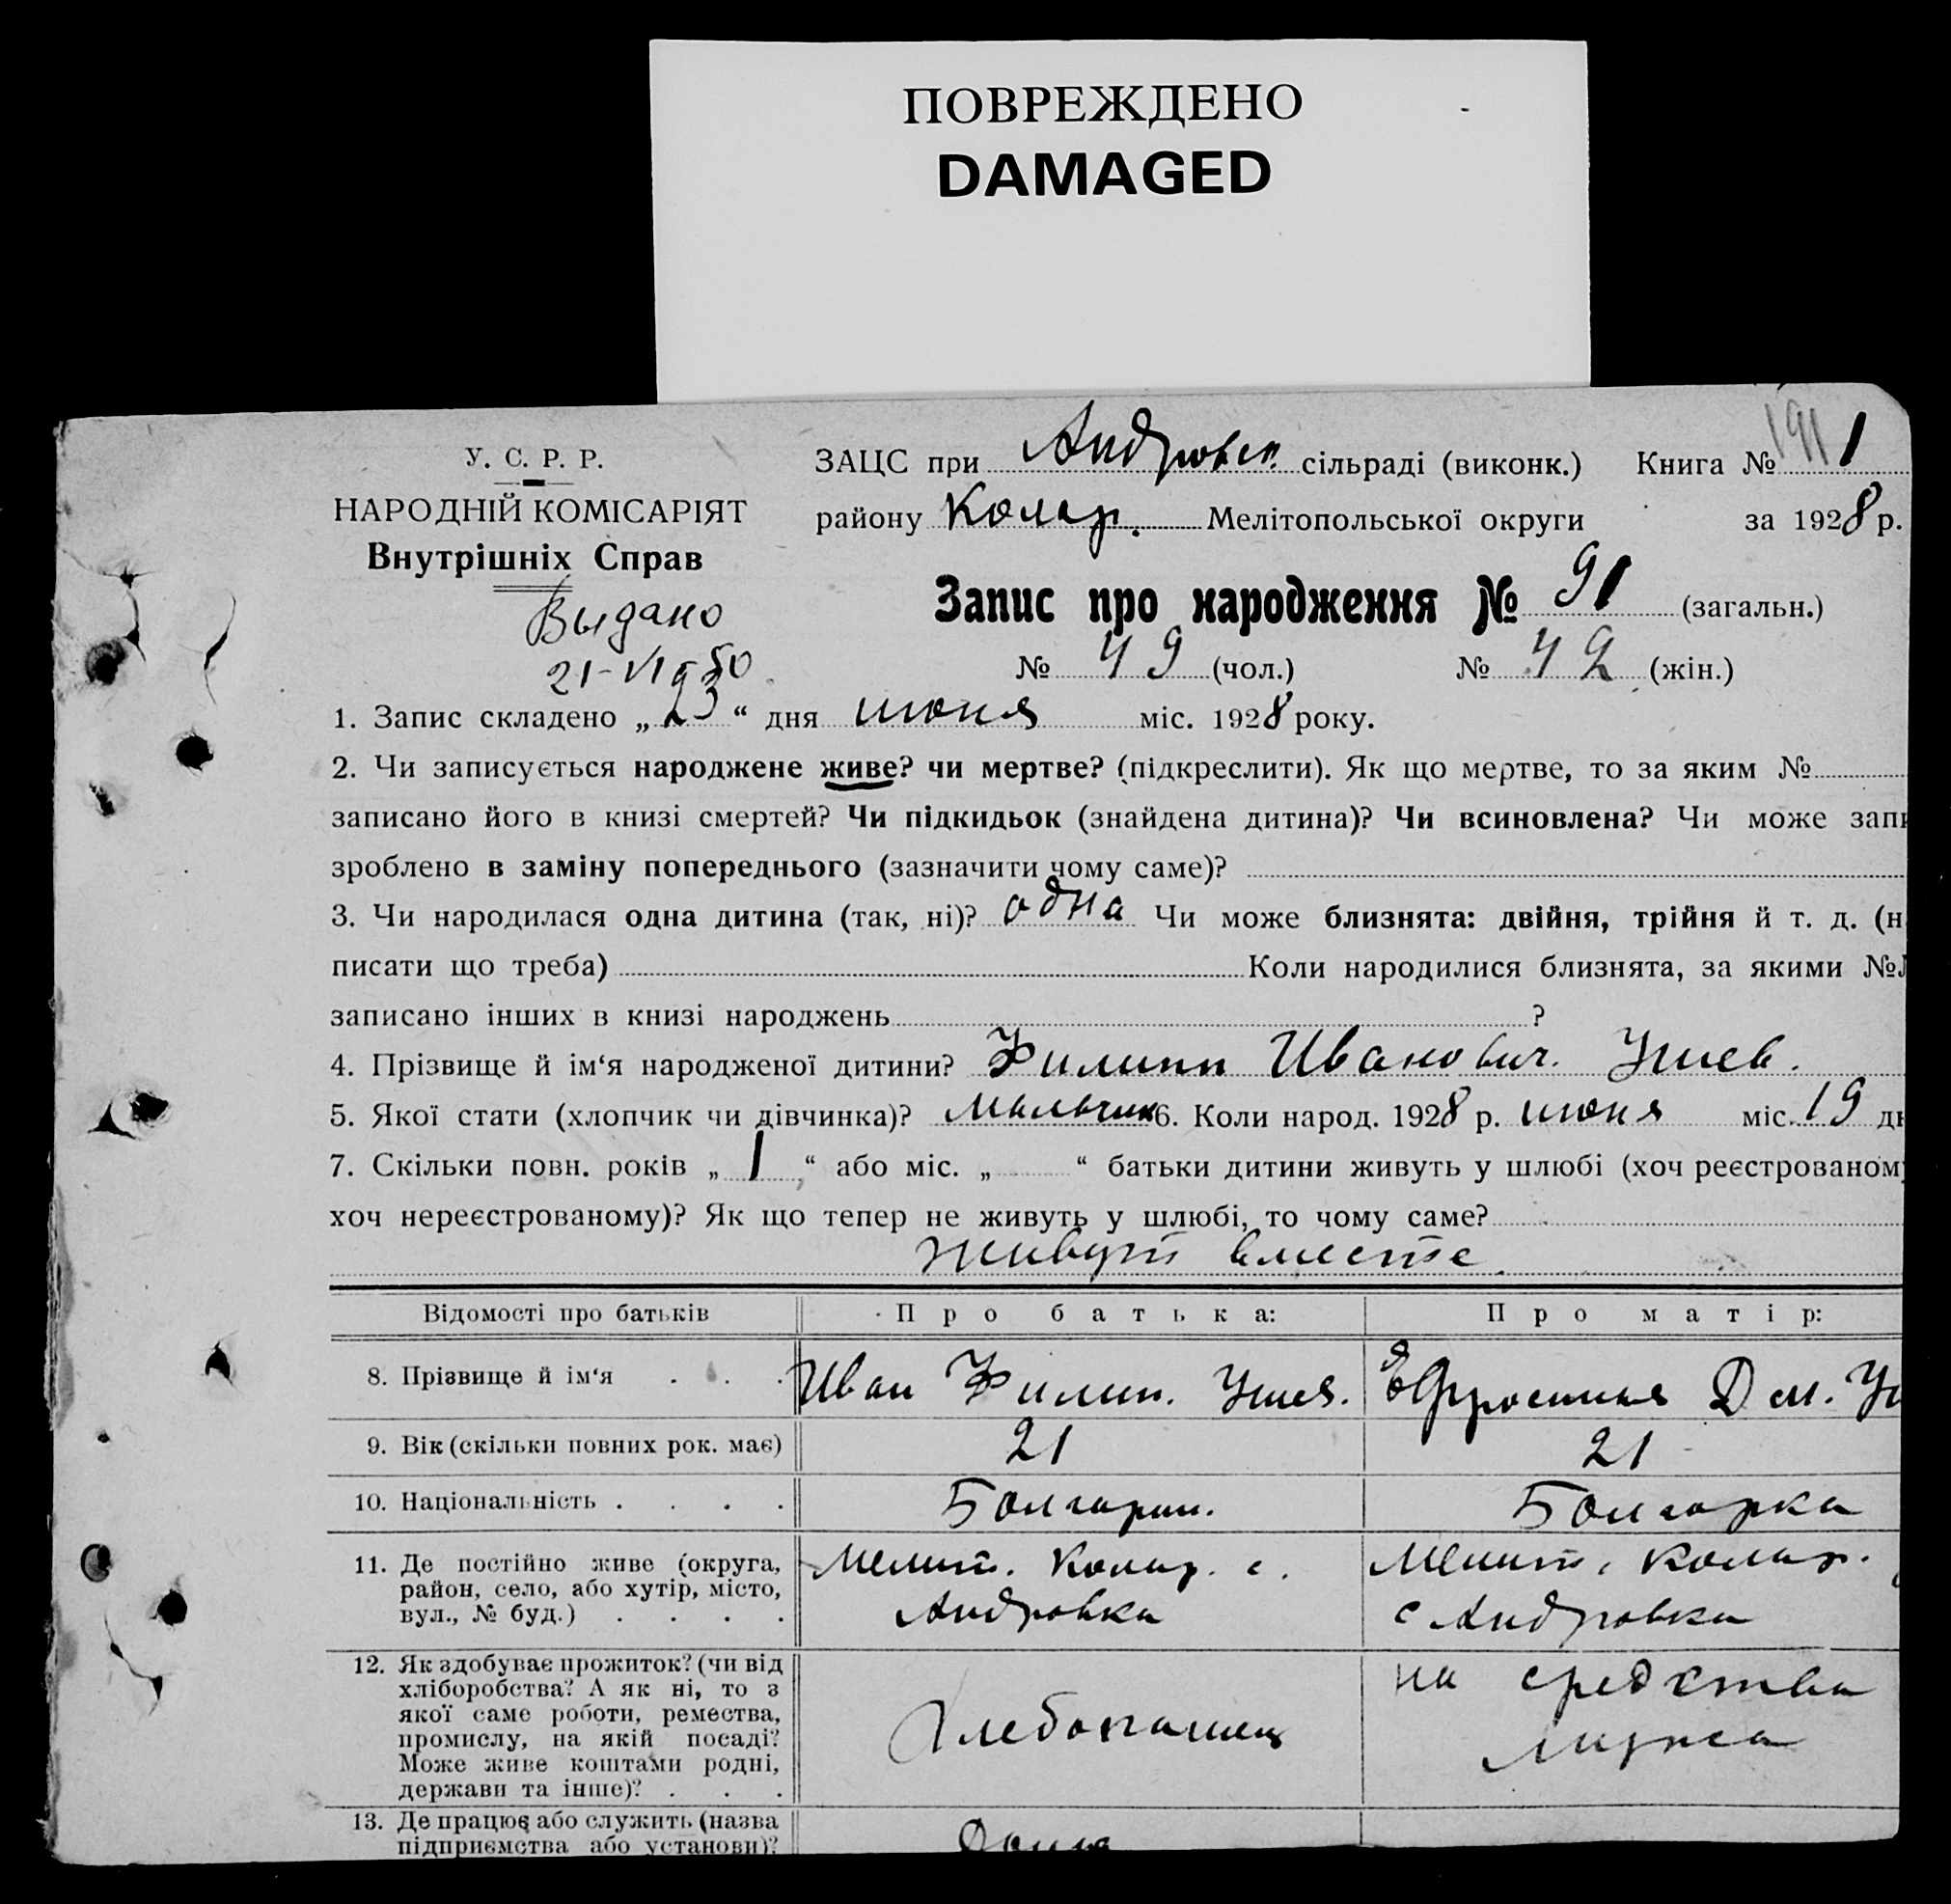 ПОВРЕЖДЕНО
DAMAGED
У. С. Р. Р.
НАРОДНІЙ КОМІСАРІЯТ
Внутрішніх Справ
Выдано
21-VI
ЗАЦС при Андровск. сільраді (виконк.) Книга № 1
району Колар. Мелітопольської округи за 1928 р.
Запис про народження № 91 (загальн.)
№ 49 (чол.) № 42 (жін.)
1. Запис складено „23“ дня июня міс. 1928 року.
2. Чи записується народжене живе? чи мертве? (підкреслити). Як що мертве, то за яким №
записано його в книзі смертей? Чи підкидьок (знайдена дитина)? Чи всиновлена? Чи може запи
зроблено в заміну попереднього (зазначити чому саме)?
3. Чи народилася одна дитина (так, ні)? одна Чи може близнята: двійня, трійня й т. д. (н
писати що треба) Коли народилися близнята, за якими №
записано інших в книзі народжень ?
4. Прізвище й ім‘я народженої дитини? Филипп Иванович. Ушев.
5. Якої стати (хлопчик чи дівчинка)? Мальчик 6. Коли народ. 1928 р. июня міс. 19 дн
7. Скільки повн. років „1“ або міс. „ “ батьки дитини живуть у шлюбі (хоч реєстрованому
хоч нереєстрованому)? Як що тепер не живуть у шлюбі, то чому саме?
живут вместе.
Відомості про батьків Про батька: Про матір:
8. Прізвище й ім‘я . . . Иван Филип. Ушев. Ефросиния Дм. Уш
9. Вік (скільки повних рок. має) 21 21
10. Національність . . . . Болгарин. Болгарка
11. Де постійно живе (округа, район, село, або хутір, місто, вул., № буд.) . . . .
Мелит. Колар. с.
Андровка
Мелит. Колар.
с Андровка
12. Як здобуває прожиток? (чи від хліборобства? А як ні, то з якої саме роботи, ремества, промислу, на якій посаді? Може живе коштами родні, держави та інше)? . . .
Хлебопашец
на средства
мужа
13. Де працює або служить (назва
підприємства або установи)?